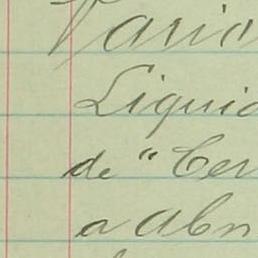 Vario
Liquid
de "Cer
a Abn